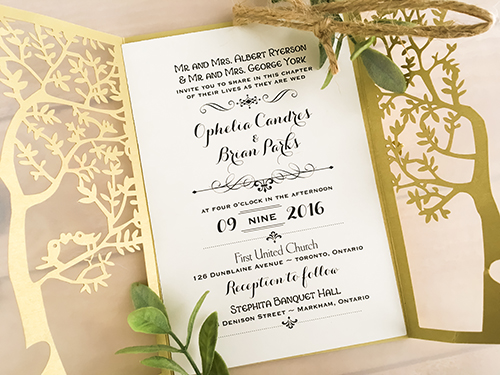 Mr and Mrs. Albert Ryerson
& Mr and Mrs. George York
invite you to share in this chapter
of their lives as they are wed
Ophelia Candres
&
Brean Parks
at four o'clock in the afternoon
09 NINE 2016
First United Church
126 Dunblaine Avenue ~ Toronto, Ontario
Reception to follow
Stephita Banquet Hall
Denison Street ~ Markham, Ontario